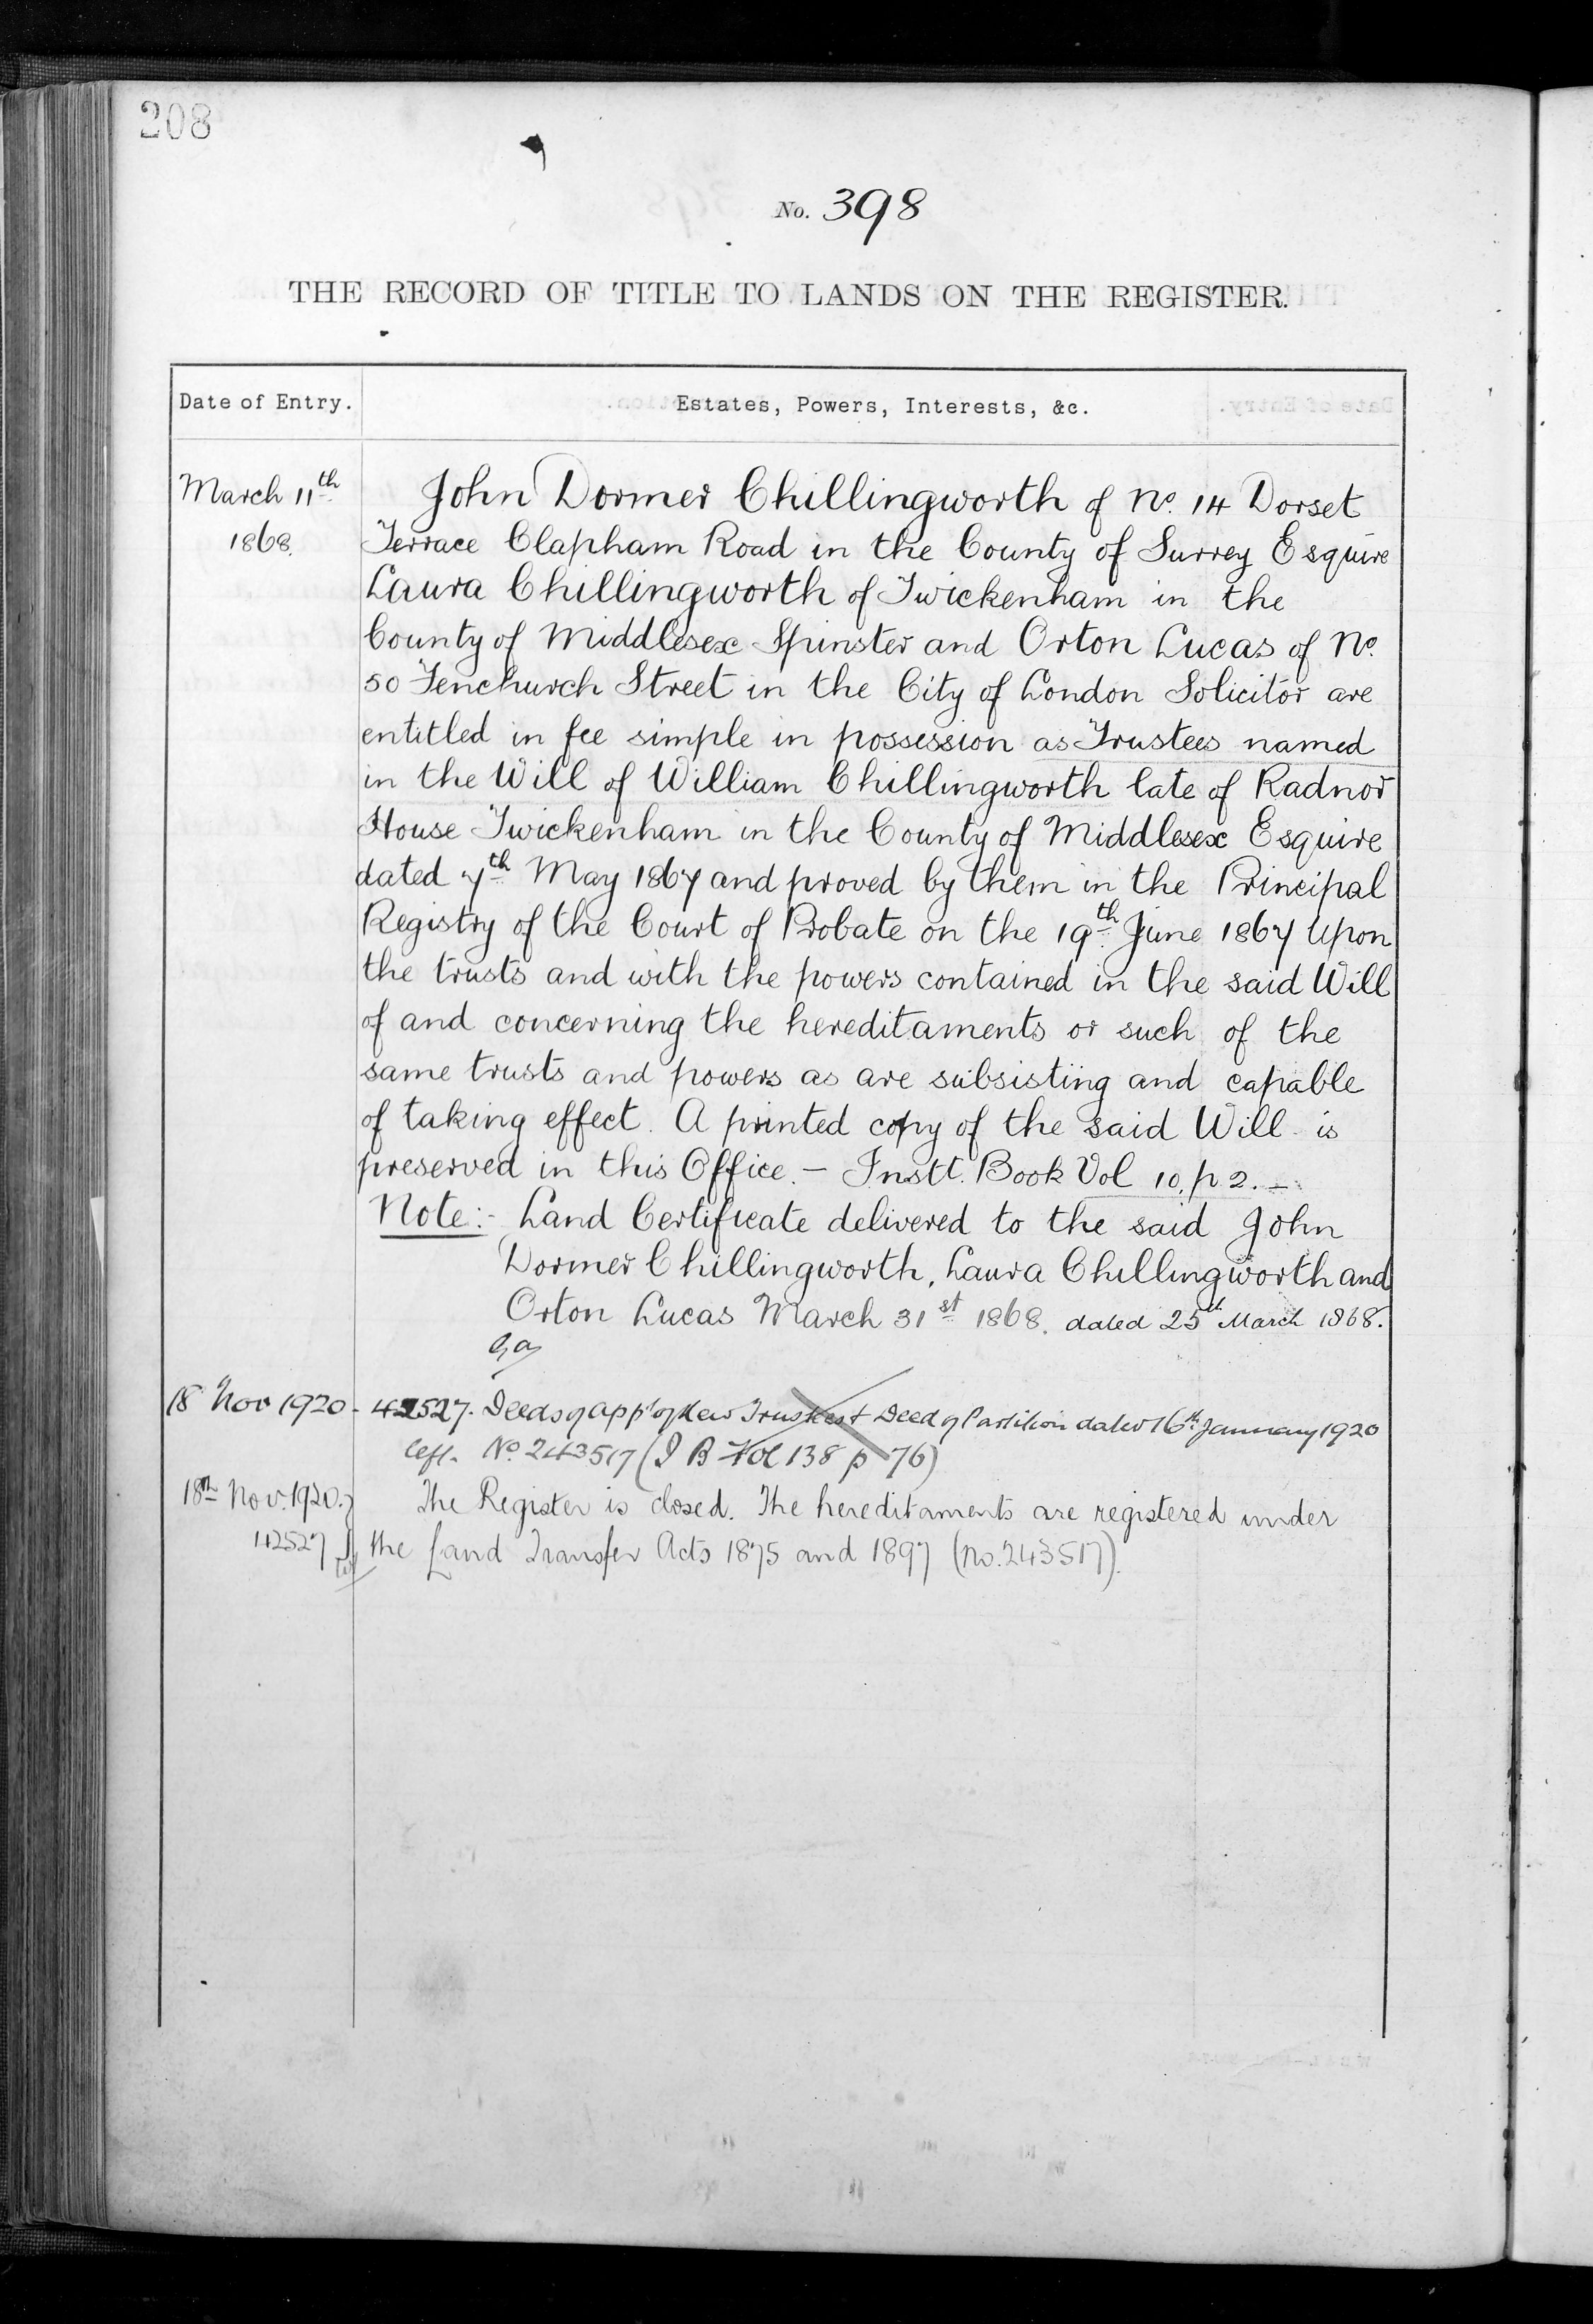 208
No. 398
THE RECORD OF TITLE TO LANDS ON THE REGISTER.
Date of Entry.
Estates, Powers, Interests, &c.
March 11th
1868.
John Dormer Chillingworth of No. 14 Dorset
Terrace Clapham Road in the County of Surrey Esquire
Laura Chillingworth of Twickenham in the
County of Middlesex Spinster and Orton Lucas of No.
50 Fenchurch Street in the City of London Solicitor are
entitled in fee simple in possession as Trustees named
in the Will of William Chillingworth late of Radnor
House Twickenham in the County of Middlesex Esquire
dated 7th May 1867 and proved by them in the Principal
Registry of the Court of Probate on the 19th June 1867 Upon
the trusts and with the powers contained in the said Will
of and concerning the hereditaments or such of the
same trusts and powers as are subsisting and capable
of taking effect. A printed copy of the said Will is
preserved in this Office. — Instt. Book Vol 10. p 2. —
Note:- Land Certificate delivered to the said John
Dormer Chillingworth, Laura Chillingworth and
Orton Lucas March 31st 1868. dated 25th March 1868.
18 Nov 1920 - 42527. Deeds of appt of New Trustees & Deed of Partition dated 16th January 1920
No. 243517 (I B Vol 138 p 76)
18th Nov. 1920.
42527
The Register is closed. The hereditaments are registered under
the Land Transfer Acts 1875 and 1897 (No. 243517).